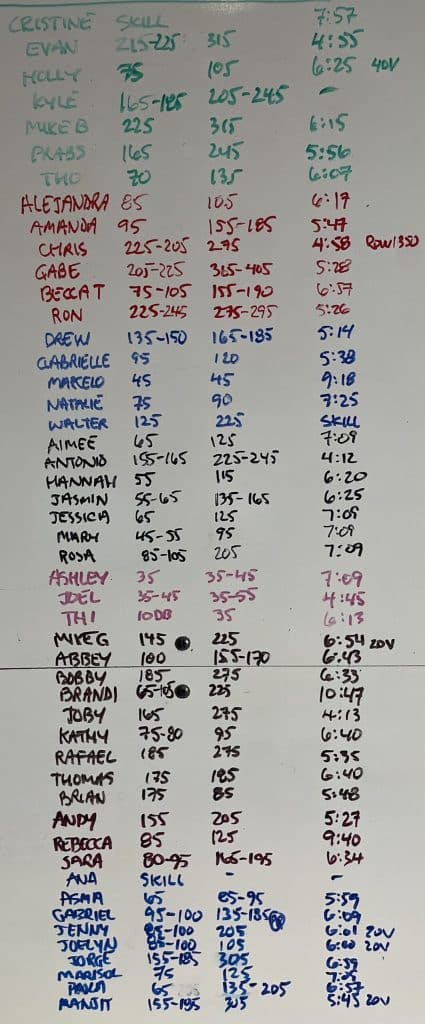 CRISTINE SKILL 7:57
EVAN 215-225 315 4:55
HOLLY 75 105 6:25 40V
KYLE 165-185 205-245 -
MIKE B 225 315 6:15
PRABS 165 245 5:56
THO 70 135 6:07
ALEJANDRA 85 105 6:17
AMANDA 95 155-185 5:47
CHRIS 225-205 275 4:58 ROW 1350
GABE 205-225 365-405 5:28
BECCA T 75-105 155-190 6:57
RON 225-245 275-295 5:26
DREW 135-150 165-185 5:14
GABRIELLE 95 120 5:38
MARCELO 45 45 9:18
NATALIE 75 90 7:25
WALTER 125 225 SKILL
AIMEE 65 125 7:09
ANTONIO 155-165 225-245 4:12
HANNAH 55 115 6:20
JASMIN 55-65 135-165 6:25
JESSICA 65 125 7:09
MARY 45-55 95 7:09
ROSA 85-105 205 7:09
ASHLEY 35 35-45 7:09
JOEL 35-45 35-55 4:45
THI 10DB 35 6:13
MIKE G 145 225 6:54 20V
ABBEY 100 155-170 6:43
BOBBY 185 275 6:33
BRANDI 65-105 225 10:47
JOBY 165 275 4:13
KATHY 75-80 95 6:40
RAFAEL 185 275 5:35
THOMAS 175 185 6:40
BRIAN 175 85 5:48
ANDY 155 205 5:27
REBECCA 85 125 9:40
SARA 80-95 165-195 6:34
ANA SKILL - -
ASMA 65 85-95 5:59
GABRIEL 95-100 135-185 6:09
JENNY 85-100 205 6:01 20V
JOELYN 85-100 105 6:00 20V
JORGE 155-185 305 6:39
MARISOL 75 125 7:05
PAULA 65 135-205 6:57
MANJIT 155-185 305 5:45 20V